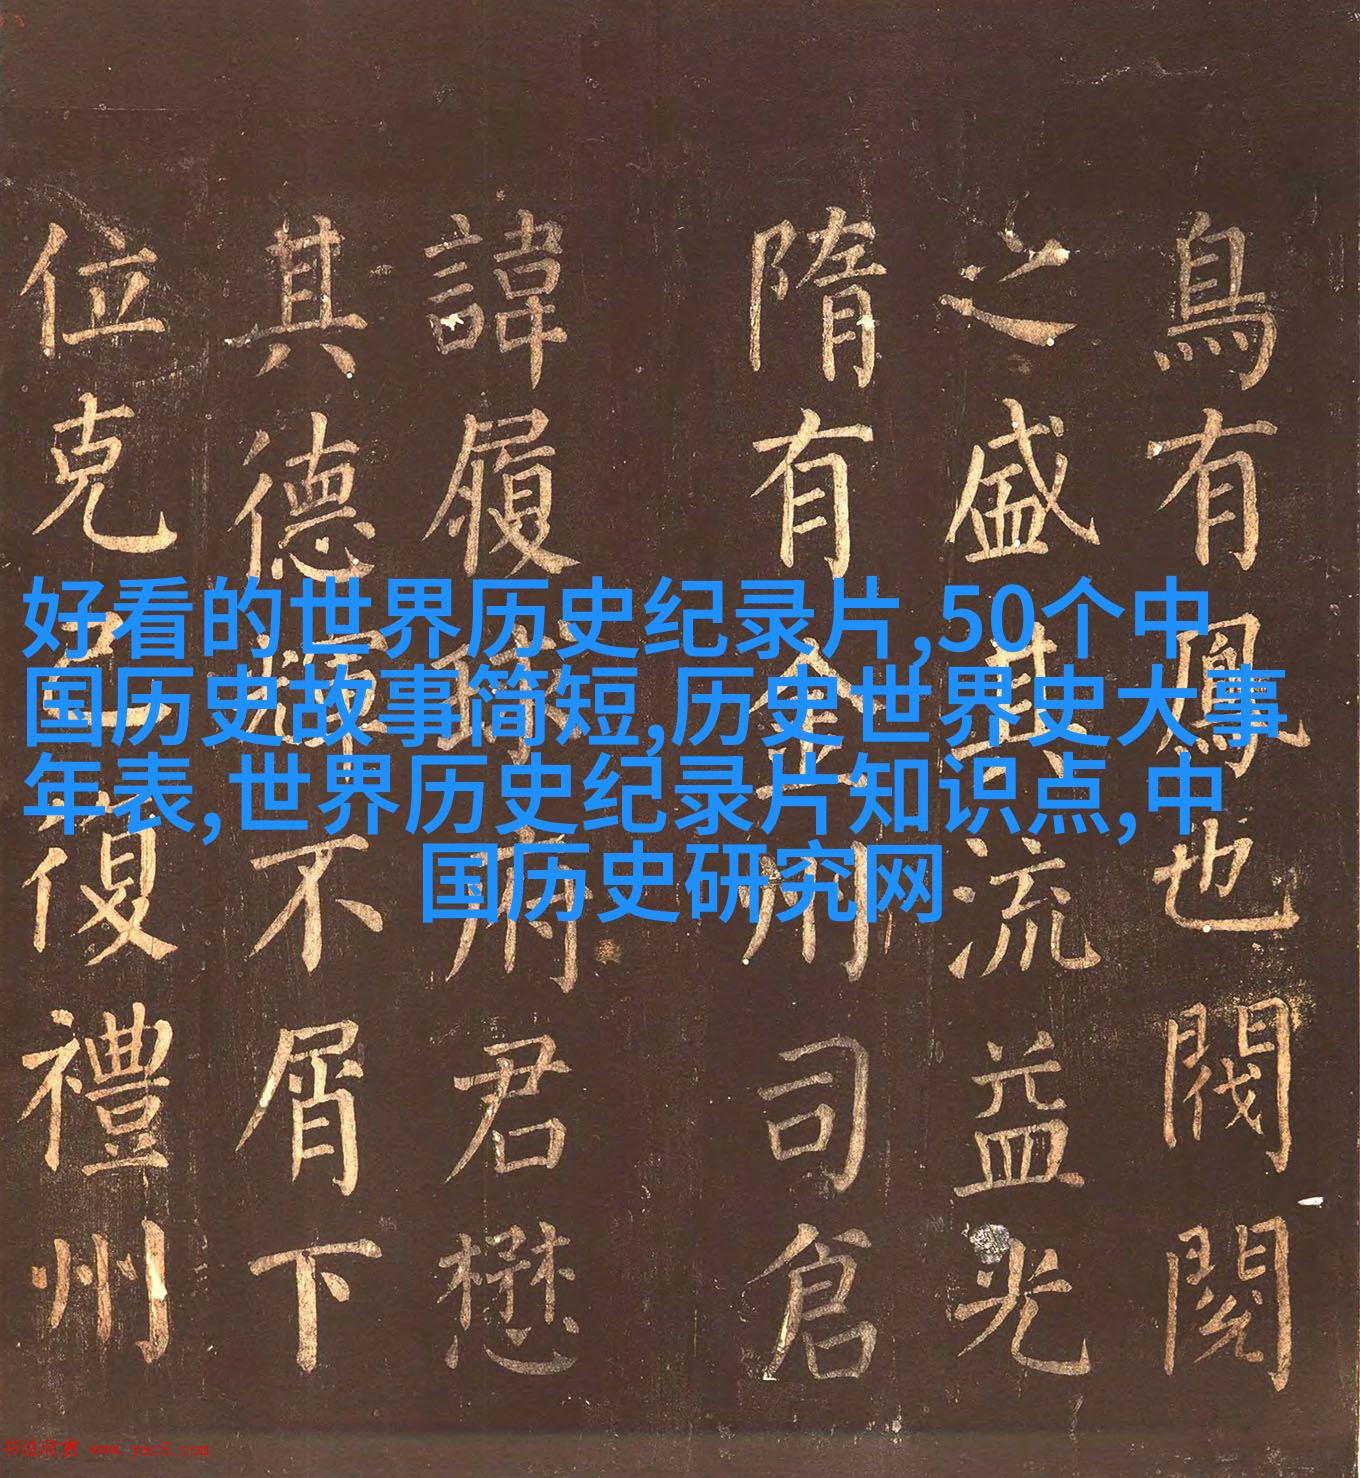 好看的世界历史纪录片,50个中
国历史故事简短,历史世界史大事
年表,世界历史纪录片知识点,中
国历史研究网
鳥有鳳也閥閱
之盛其流益光
隋有金州司倉
諱履府君懋
其德不屑下
位克己復禮州
书法欣赏 www.yac8.com